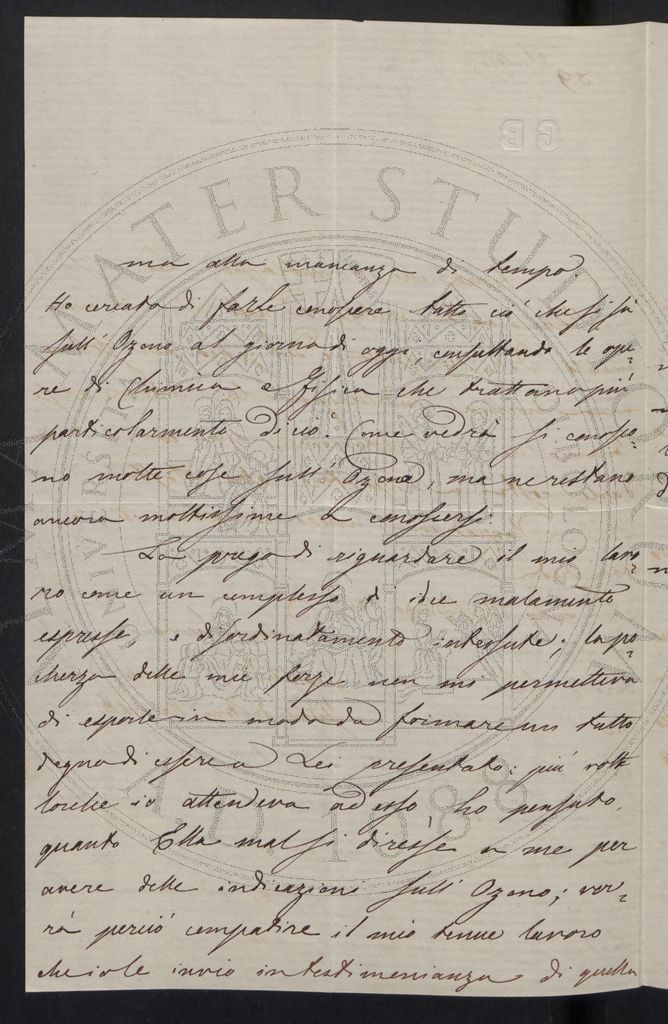 GB
ma alla mancanza di tempo.
Ho cercato di farle conoscere tutto ciò che si sà
sull' Ozono al giorno di oggi, consultando le ope-
re di Chimica e Fisica che trattano più
particolarmente di ciò. Come vedrà si conosco-
no molte cose sull' Ozono, ma ne restano
ancora moltissime a conoscersi.
La prego di riguardare il mio lavo-
ro come un complesso d' idee malamente
espresse, e disordinatamente intessute; la po-
chezza delle mie forze non mi permetteva
di esporle in modo da formare un tutto
degno di essere a Lei presentato: più volte
lorche io attendeva ad esso, ho pensato,
quanto Ella mal si diresse a me per
avere delle indicazioni sull' Ozono; vor-
rà perciò compatire il mio tenue lavoro
che io le invio in testimonianza di quella
ALMA MATER STUDIORUM
A.D. 1088